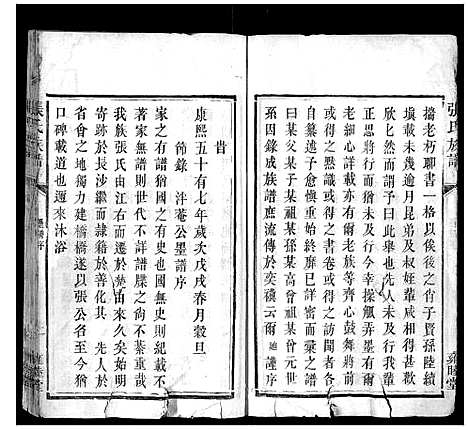 張氏族譜
攟老朽聊書一格以俟後之肖子賢孫陸續
塡載未幾逾月昆弟及叔姪輩咸相得甚
欣欣然而謂予曰此舉也先未及行我輩
正思將行而猶未及行今幸操觚弄墨有爾
老細心詳載亦有爾老族等齊心鼓舞將前
或得之熟識者或得之書卷或得之訪聞者各
自將祖宗前後生終嗣續一一詳審而彙之書
曰某父某子某祖某孫某高曾祖某曾元世
系因錄成族譜庶流傳於奕禩云爾 謹序
敦睦堂
旹
康熙五十有七年歲次戊戌春月穀旦
節錄 泮菴公墨譜序
家之有譜猶國之有史也國無史則紀載不
著家無譜則世代不詳譜牒之尙不綦重哉
我族張氏由江右而遷於楚由來久矣始明
寄跡於長沙繼而隸籍於善化其 先人於
省會之地獨力建橋橋遂以張公名至今猶
口碑載道也邇來沐浴
張氏族譜